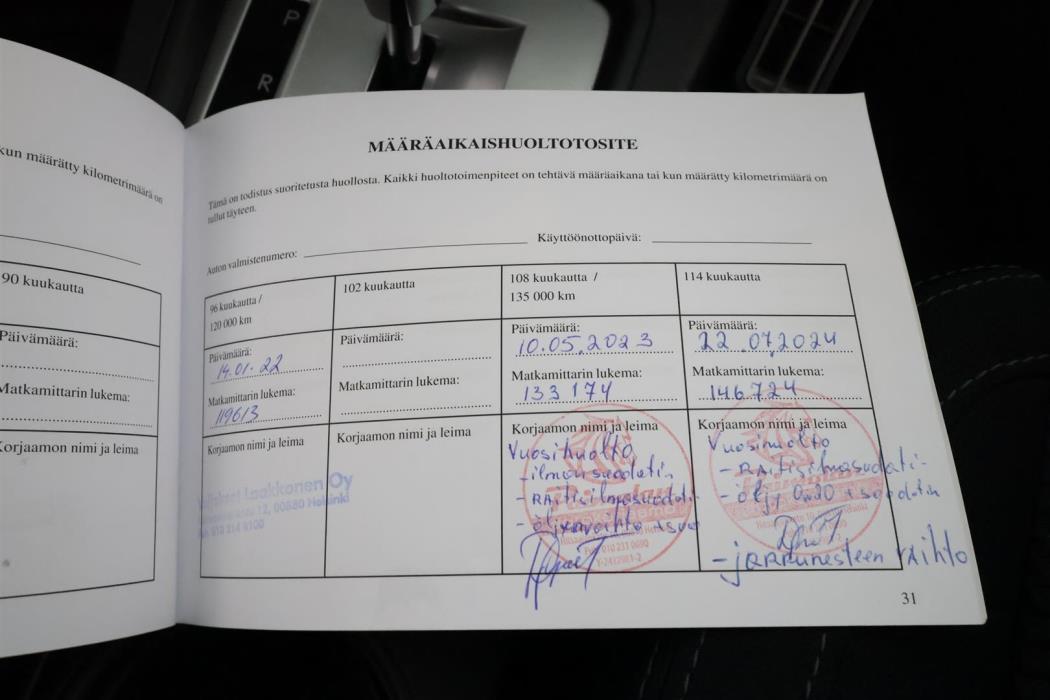 P
R
kun määrätty kilometrimäärä on
90 kuukautta
Päivämäärä:
Matkamittarin lukema:
Korjaamon nimi ja leima
MÄÄRÄAIKAISHUOLTOTOSITE
Tämä on todistus suoritetusta huollosta. Kaikki huoltotoimenpiteet on tehtävä määräaikana tai kun määrätty kilometrimäärä on
tullut täyteen.
Auton valmistenumero:
Käyttöönottopäivä:
96 kuukautta /
120 000 km
Päivämäärä:
14.01.22
Matkamittarin lukema:
119613
Korjaamon nimi ja leima
Laakkonen Oy
12, 00880 Helsinki
010 214 8100
102 kuukautta
Päivämäärä:
Matkamittarin lukema:
Korjaamon nimi ja leima
108 kuukautta /
135 000 km
Päivämäärä:
10.05.2023
Matkamittarin lukema:
133 174
Korjaamon nimi ja leima
Vuosihuolto
- ilmansuodatin
- RAitisilmasuodati-
- öljynvaihto + suo
010 231 0690
114 kuukautta
Päivämäärä:
22.07.2024
Matkamittarin lukema:
146724
Korjaamon nimi ja leima
Vuosihuolto
- RAitisilmasuodati-
- öljy 0w20 + suodatin
- jarrunesteen vaihto
31